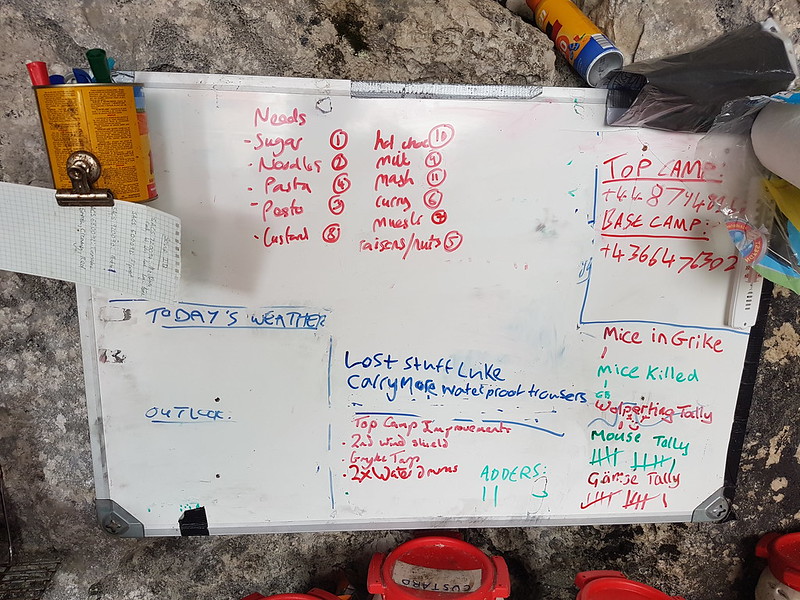 Needs
- Sugar 1
- Noodles 2
- Pasta 4
- Pesto 3
- Custard 8
hot choc 10
milk 9
mash 11
curry 6
muesli 7
raisons/nuts 5
TOP CAMP:
BASE CAMP:
+4366476302
TODAY'S WEATHER
OUTLOOK.
LOST Stuff Luke
Carry More waterproof trousers
Top Camp Improvements
• 2nd wind shield
• 2x Water drums
ADDERS:
Mice in Grike
Mice Killed
GB
Wolperting Tally
Mouse Tally
Gämse Tally
CUSTARD